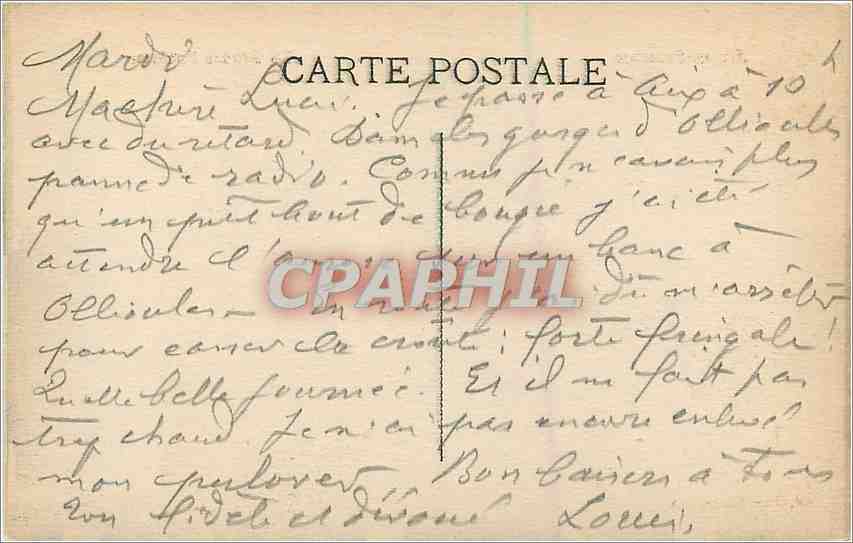 Mardi
CARTE POSTALE
Ma chère Lucie. Je passe à Aix à 10 h
avec du retard. Dans les gorges d'Ollioules
panne de radio. Comme je n'avais plus
qu'un petit bout de bougie j'ai été
attendre l'aurore sur un banc à
CPAPHIL
Ollioules - En route j'ai dû m'arrêter
pour casser la croûte ; forte fringale !
Quelle belle journée. Et il ne fait pas
trop chaud. Je n'ai pas encore enlevé
mon pulover. Bon baisers à tous
Ton fidèle et dévoué Louis.